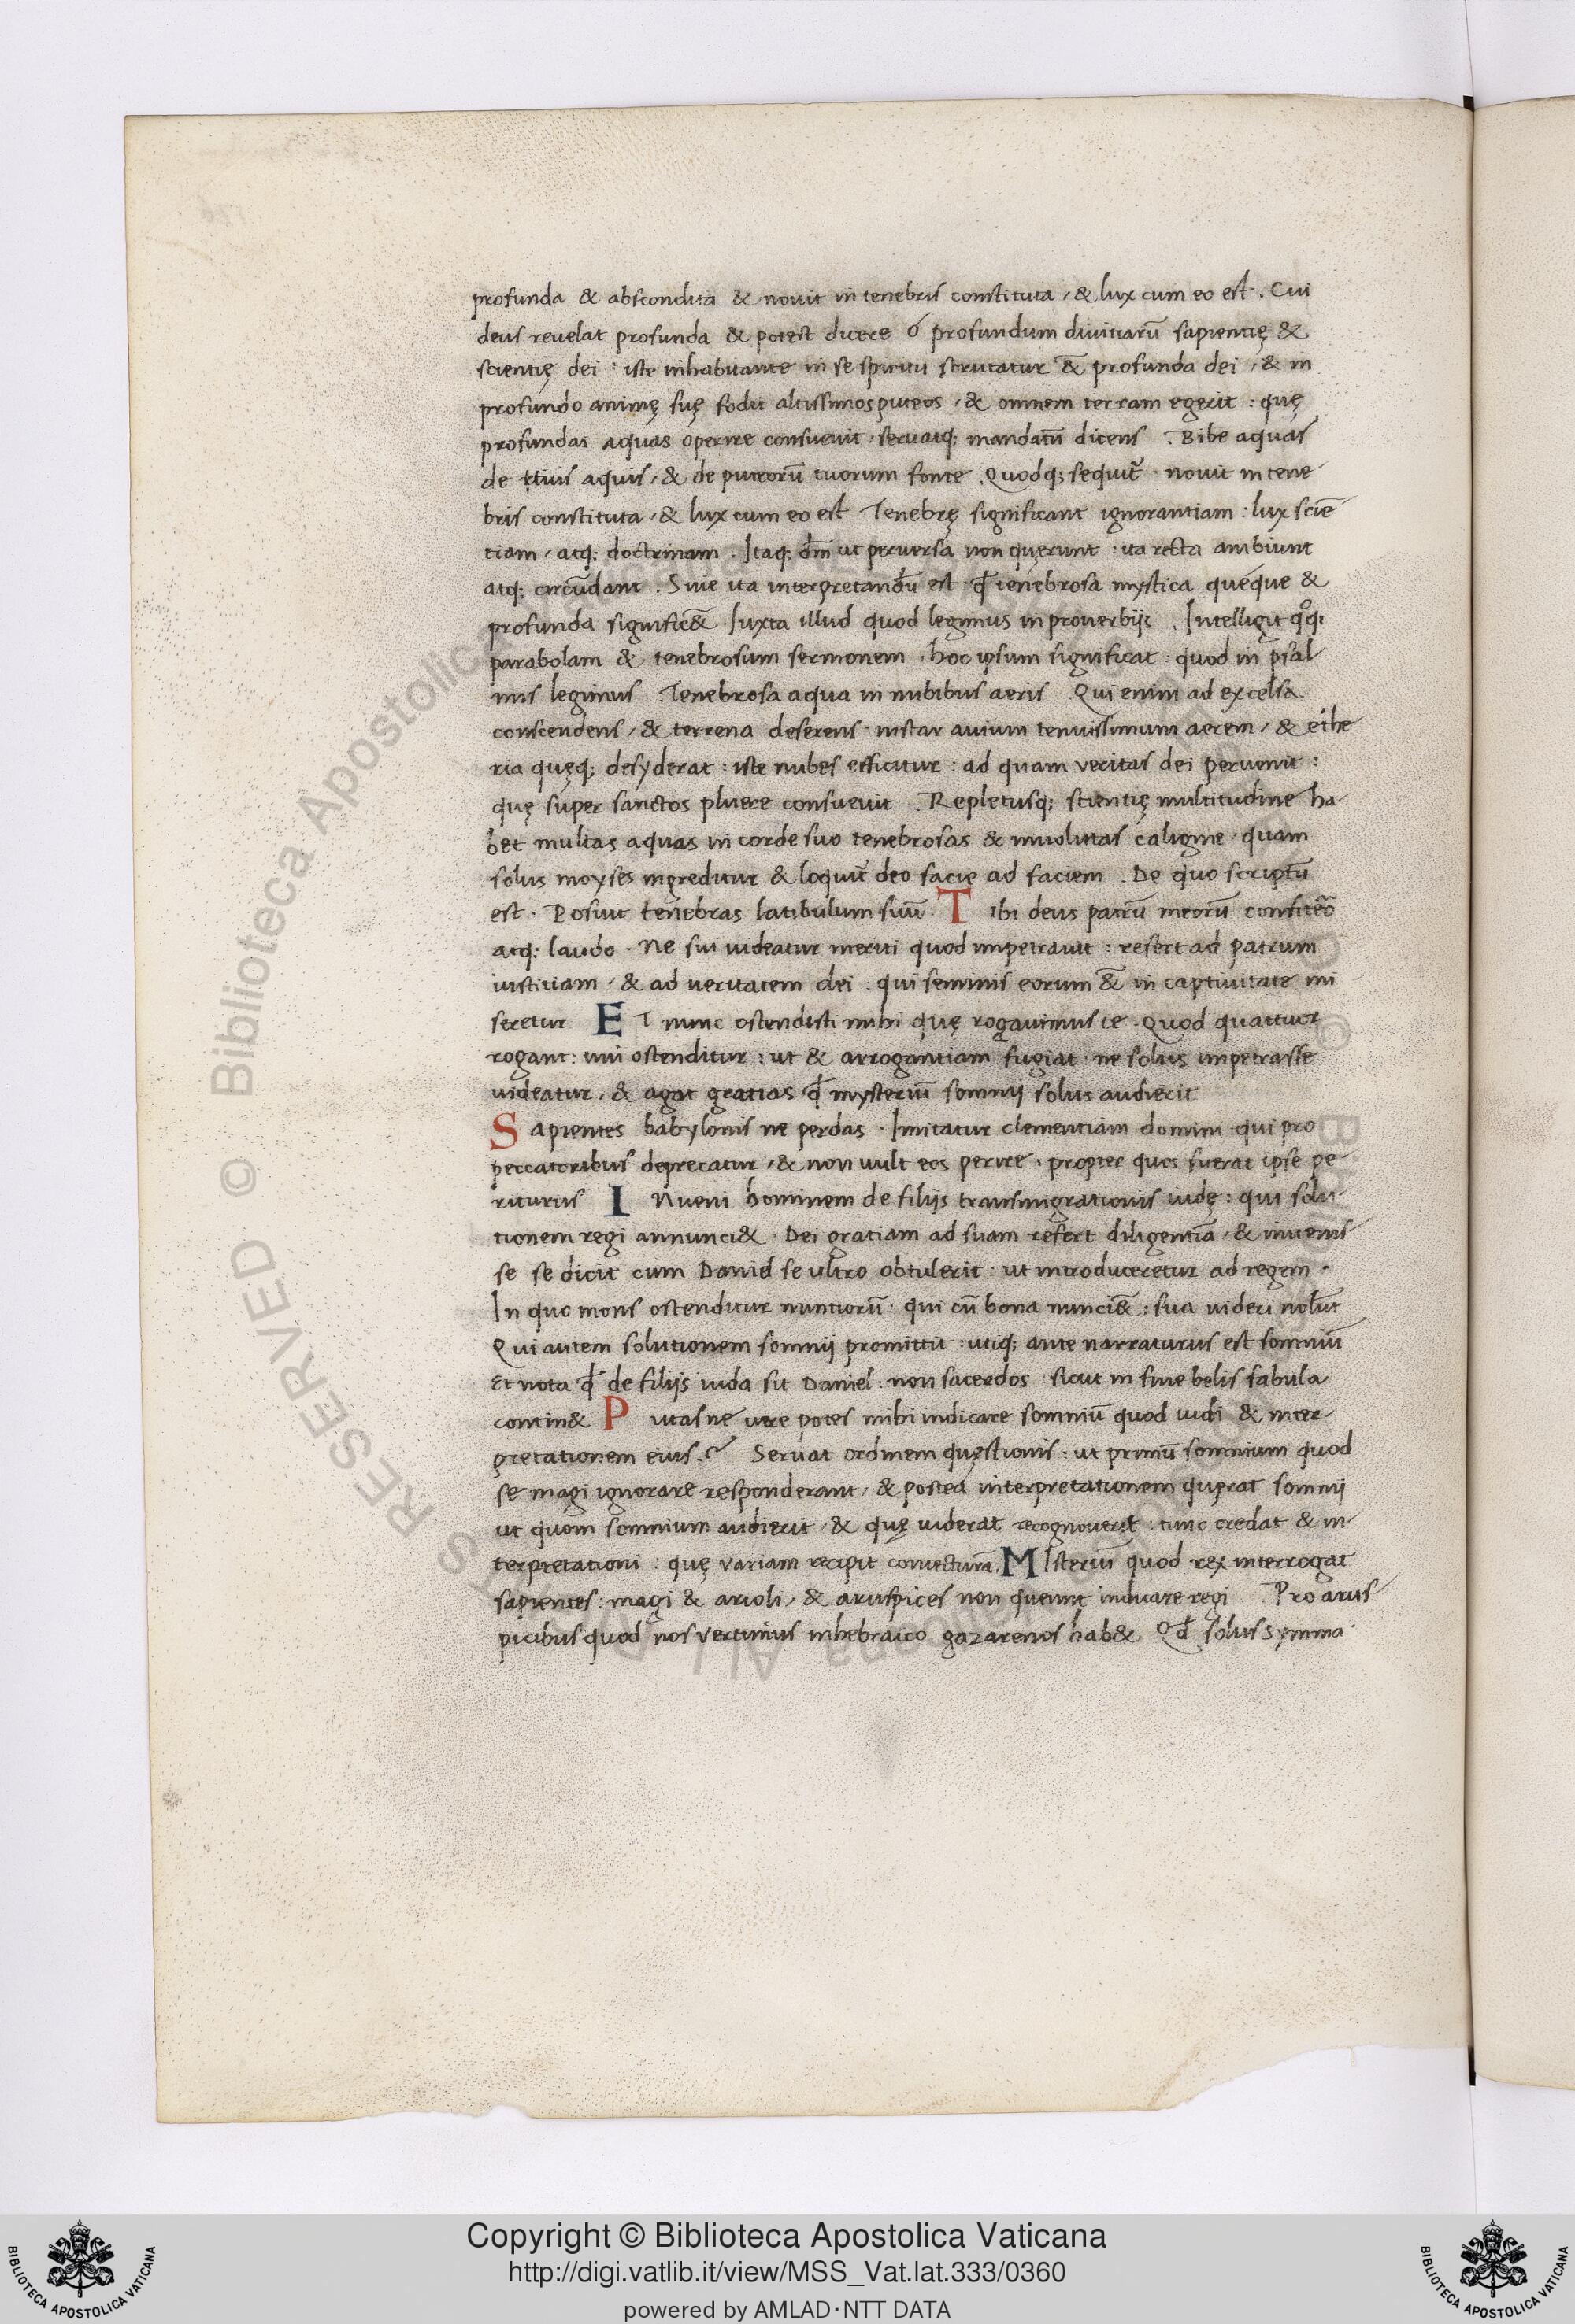 profunda & abscondita & novit in tenebris constituta, & lux cum eo est. Cui
deus reuelat profunda & potest dicere ó profundum diuitiarū sapientię &
scientię dei : iste inhabitante in se spiritu scrutatur &̄ profunda dei, & in
profundo animę suę fodit altissimos puteos, & omnem terram egerit : quę
profundas aquas operire consueuit, seruatq; mandatū dicens. Bibe aquas
de tuis aquis, & de puteorū tuorum fonte. Quodq; sequit̄ · nouit in tene-
bris constituta, & lux cum eo est Tenebrę significant ignorantiam : lux sciē
tiam, atq; doctrinam. Itaq; dm̄ ut peruersa non quęrunt : ita recta ambiunt
atq; circūdant. Siue ita interpretandū est : qđ tenebrosa mystica quęque &
profunda signific&̄. Iuxta illud quod legimus in prouerbijs. Intelligit qoq;
parabolam & tenebrosum sermonem. hoc ipsum significat : quod in psal-
mis legimus. Tenebrosa aqua in nubibus aeris. Qui enim ad excelsa
conscendens, & terrena deserens · instar auium tenuissimum aerem, & ethe
ria quęq; desyderat : iste nubes efficitur : ad quam veritas dei peruenit :
quę super sanctos pluere consueuit. Repletusq; scientię multitudine ha-
bet multas aquas in corde suo tenebrosas & inuolutas caligine, quam
solus moyses ingreditur & loquit̄ deo facie ad faciem. De quo scriptū
est. Posuit tenebras latibulum suū Tibi deus patrū meorū confiteor
atq; laudo. Ne sui uideatur meriti quod impetrauit : refert ad patrum
iustitiam, & ad ueritatem dei. qui seminis eorum &̄ in captiuitate mi
seretur ET nunc ostendisti mihi quę rogauimus te. Quod quattuor
rogant : uni ostenditur : ut & arrogantiam fugiat : ne solus impetrasse
uideatur, & agat gratias qđ mysteriū somnij solus audierit
Sapientes babylonis ne perdas. Imitatur clementiam domini qui pro
peccatoribus deprecatur, & non uult eos perire, propter quos fuerat ipse pe-
riturus INueni hominem de filijs transmigrationis iudę : qui solu-
tionem regi annunci&. Dei gratiam ad suam refert diligentiā, & inuenis-
se se dicit cum Daniel se ultro obtulerit : ut introduceretur ad regem.
In quo mons ostenditur nuntiorū : qui cū bona nunci&̄ : sua uideri nolūt
Qui autem solutionem somnij promittit : utiq; ante narraturus est somniū
Et nota qđ de filijs iuda sit Daniel : non sacerdos : sicut in fine belis fabula
contin& Putasne vere potes mihi indicare somniū quod uidi & inter-
pretationem eius.? Seruat ordinem quęstionis : ut primū somnium quod
se magi ignorare responderant, & postea interpretationem quęrat somnij
ut quom somnium audierit, & quę uiderat recognouerit : tunc credat & in-
terpretationi : quę variam recipit coniecturā. MIsteriū quod rex interrogat
sapientes : magi & arioli, & aruspices non queunt indicare regi. Pro arus-
picibus quod nos vertimus in hebraico gazarenos hab& Qđ solus symma-
Copyright © Biblioteca Apostolica Vaticana
http://digi.vatlib.it/view/MSS_Vat.lat.333/0360
powered by AMLAD·NTT DATA
BIBLIOTECA APOSTOLICA VATICANA
BIBLIOTECA APOSTOLICA VATICANA